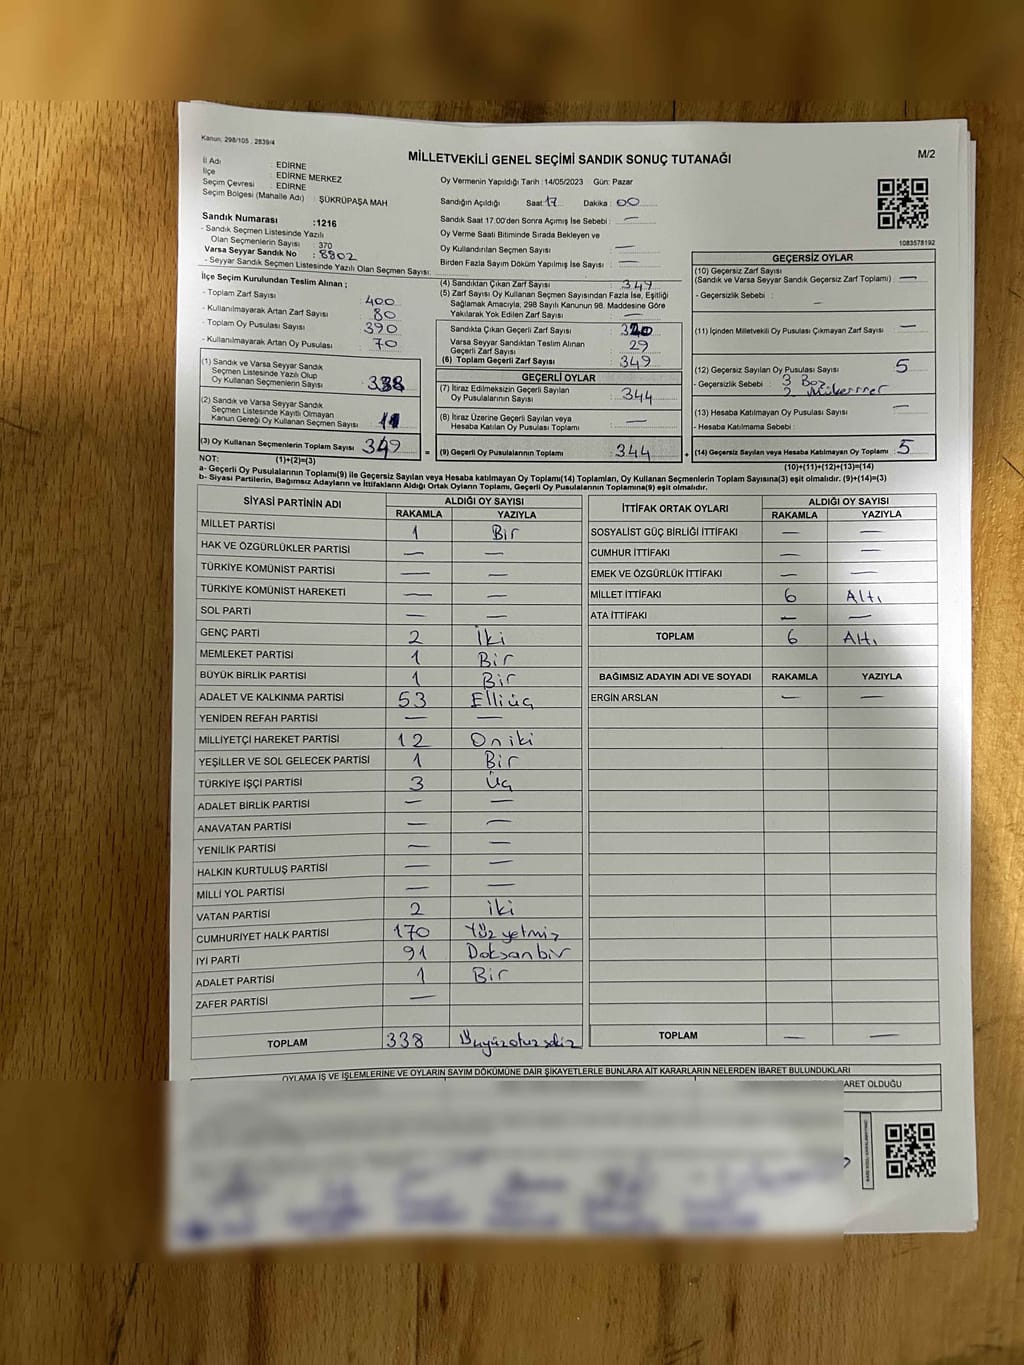 Kanun: 298/105 : 2839/4
MİLLETVEKİLİ GENEL SEÇİMİ SANDIK SONUÇ TUTANAĞI
M/2
İl Adı : EDİRNE
İlçe : EDİRNE MERKEZ
Seçim Çevresi : EDİRNE
Seçim Bölgesi (Mahalle Adı) : ŞÜKRÜPAŞA MAH
Sandık Numarası :1216
- Sandık Seçmen Listesinde Yazılı
Olan Seçmenlerin Sayısı : 370
Varsa Seyyar Sandık No : 8802
- Seyyar Sandık Seçmen Listesinde Yazılı Olan Seçmen Sayısı:
Oy Vermenin Yapıldığı Tarih :14/05/2023 Gün: Pazar
Sandığın Açıldığı Saat 17 Dakika : 00
Sandık Saat 17.00'den Sonra Açımış İse Sebebi : —
Oy Verme Saati Bitiminde Sırada Bekleyen ve
Oy Kullandırılan Seçmen Sayısı : —
Birden Fazla Sayım Döküm Yapılmış İse Sayısı : —
1083578192
İlçe Seçim Kurulundan Teslim Alınan ;
- Toplam Zarf Sayısı : 400
- Kullanılmayarak Artan Zarf Sayısı : 80
- Toplam Oy Pusulası Sayısı : 390
- Kullanılmayarak Artan Oy Pusulası : 70
(1) Sandık ve Varsa Seyyar Sandık
Seçmen Listesinde Yazılı Olup
Oy Kullanan Seçmenlerin Sayısı : 338
(2) Sandık ve Varsa Seyyar Sandık
Seçmen Listesinde Kayıtlı Olmayan
Kanun Gereği Oy Kullanan Seçmen Sayısı : 11
(3) Oy Kullanan Seçmenlerin Toplam Sayısı : 349
(4) Sandıktan Çıkan Zarf Sayısı : 349
(5) Zarf Sayısı Oy Kullanan Seçmen Sayısından Fazla İse, Eşitliği
Sağlamak Amacıyla, 298 Sayılı Kanunun 98. Maddesine Göre
Yakılarak Yok Edilen Zarf Sayısı : —
Sandıkta Çıkan Geçerli Zarf Sayısı : 320
Varsa Seyyar Sandıktan Teslim Alınan
Geçerli Zarf Sayısı : 29
(6) Toplam Geçerli Zarf Sayısı : 349
GEÇERLİ OYLAR
(7) İtiraz Edilmeksizin Geçerli Sayılan
Oy Pusulalarının Sayısı : 344
(8) İtiraz Üzerine Geçerli Sayılan veya
Hesaba Katılan Oy Pusulası Toplamı : —
= (9) Geçerli Oy Pusulalarının Toplamı : 344
GEÇERSİZ OYLAR
(10) Geçersiz Zarf Sayısı
(Sandık ve Varsa Seyyar Sandık Geçersiz Zarf Toplamı) : —
- Geçersizlik Sebebi : —
(11) İçinden Milletvekili Oy Pusulası Çıkmayan Zarf Sayısı : —
(12) Geçersiz Sayılan Oy Pusulası Sayısı : 5
- Geçersizlik Sebebi : 3 Boz
2. Mükerrer
(13) Hesaba Katılmayan Oy Pusulası Sayısı : —
- Hesaba Katılmama Sebebi :
+ (14) Geçersiz Sayılan veya Hesaba Katılmayan Oy Toplamı : 5
NOT: (1)+(2)=(3)
(10)+(11)+(12)+(13)=(14)
a- Geçerli Oy Pusulalarının Toplamı(9) ile Geçersiz Sayılan veya Hesaba katılmayan Oy Toplamı(14) Toplamları, Oy Kullanan Seçmenlerin Toplam Sayısına(3) eşit olmalıdır. (9)+(14)=(3)
b- Siyasi Partilerin, Bağımsız Adayların ve İttifakların Aldığı Ortak Oyların Toplamı, Geçerli Oy Pusulalarının Toplamına(9) eşit olmalıdır.
SİYASİ PARTİNİN ADI ALDIĞI OY SAYISI
RAKAMLA YAZIYLA
MİLLET PARTİSİ 1 Bir
HAK VE ÖZGÜRLÜKLER PARTİSİ — —
TÜRKİYE KOMÜNİST PARTİSİ — —
TÜRKİYE KOMÜNİST HAREKETİ — —
SOL PARTİ — —
GENÇ PARTİ 2 İki
MEMLEKET PARTİSİ 1 Bir
BÜYÜK BİRLİK PARTİSİ 1 Bir
ADALET VE KALKINMA PARTİSİ 53 Elliüç
YENİDEN REFAH PARTİSİ — —
MİLLİYETÇİ HAREKET PARTİSİ 12 Oniki
YEŞİLLER VE SOL GELECEK PARTİSİ 1 Bir
TÜRKİYE İŞÇİ PARTİSİ 3 Üç
ADALET BİRLİK PARTİSİ — —
ANAVATAN PARTİSİ — —
YENİLİK PARTİSİ — —
HALKIN KURTULUŞ PARTİSİ — —
MİLLİ YOL PARTİSİ — —
VATAN PARTİSİ 2 iki
CUMHURİYET HALK PARTİSİ 170 Yüz yetmiş
İYİ PARTİ 91 Doksanbir
ADALET PARTİSİ 1 Bir
ZAFER PARTİSİ —
TOPLAM 338 Üçyüzotuzsekiz
İTTİFAK ORTAK OYLARI ALDIĞI OY SAYISI
RAKAMLA YAZIYLA
SOSYALİST GÜÇ BİRLİĞİ İTTİFAKI — —
CUMHUR İTTİFAKI — —
EMEK VE ÖZGÜRLÜK İTTİFAKI — —
MİLLET İTTİFAKI 6 Altı
ATA İTTİFAKI — —
TOPLAM 6 Altı
BAĞIMSIZ ADAYIN ADI VE SOYADI RAKAMLA YAZIYLA
ERGİN ARSLAN — —
TOPLAM — —
OYLAMA İŞ VE İŞLEMLERİNE VE OYLARIN SAYIM DÖKÜMÜNE DAİR ŞİKAYETLERLE BUNLARA AİT KARARLARIN NELERDEN İBARET BULUNDUKLARI
ARET OLDUĞU